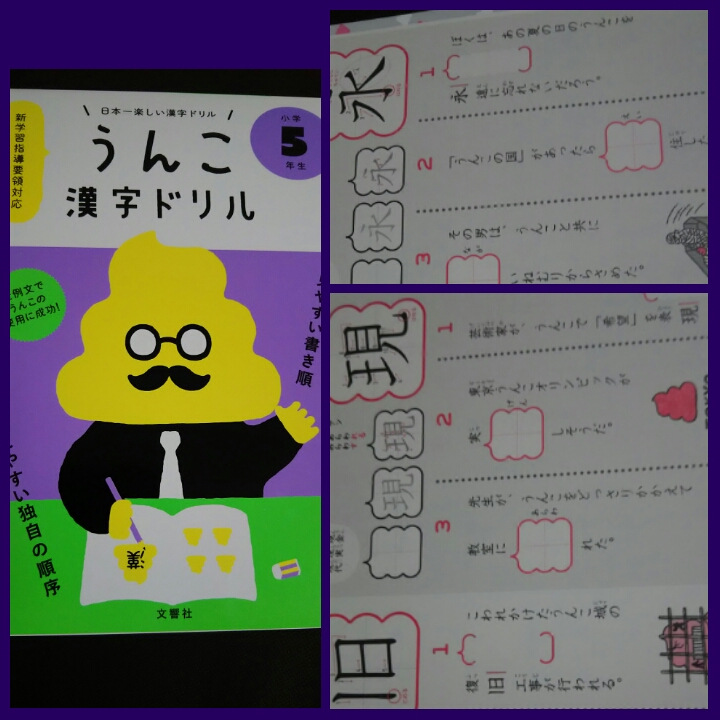 日本一楽しい漢字ドリル
うんこ
漢字ドリル
小学
5
年生
新学習指導要領対応
例文で
うんこの
使用に成功!
やすい書き順
やすい独自の順序
漢
文響社
永
永
永
1
ぼくは、あの夏の日のうんこを
永遠に忘れないだろう。
2
「うんこの国」があったら
えい
住した
3
その男は、うんこと共に
なが
いねむりからさめた。
現
現
現
1
芸術家が、うんこで「希望」を表現
2
東京うんこオリンピックが
げん
実
しそうだ。
3
先生が、うんこをどっさりかかえて
あらわ
教室に
れた。
旧
1
こわれかけたうんこ城の
復旧工事が行われる。